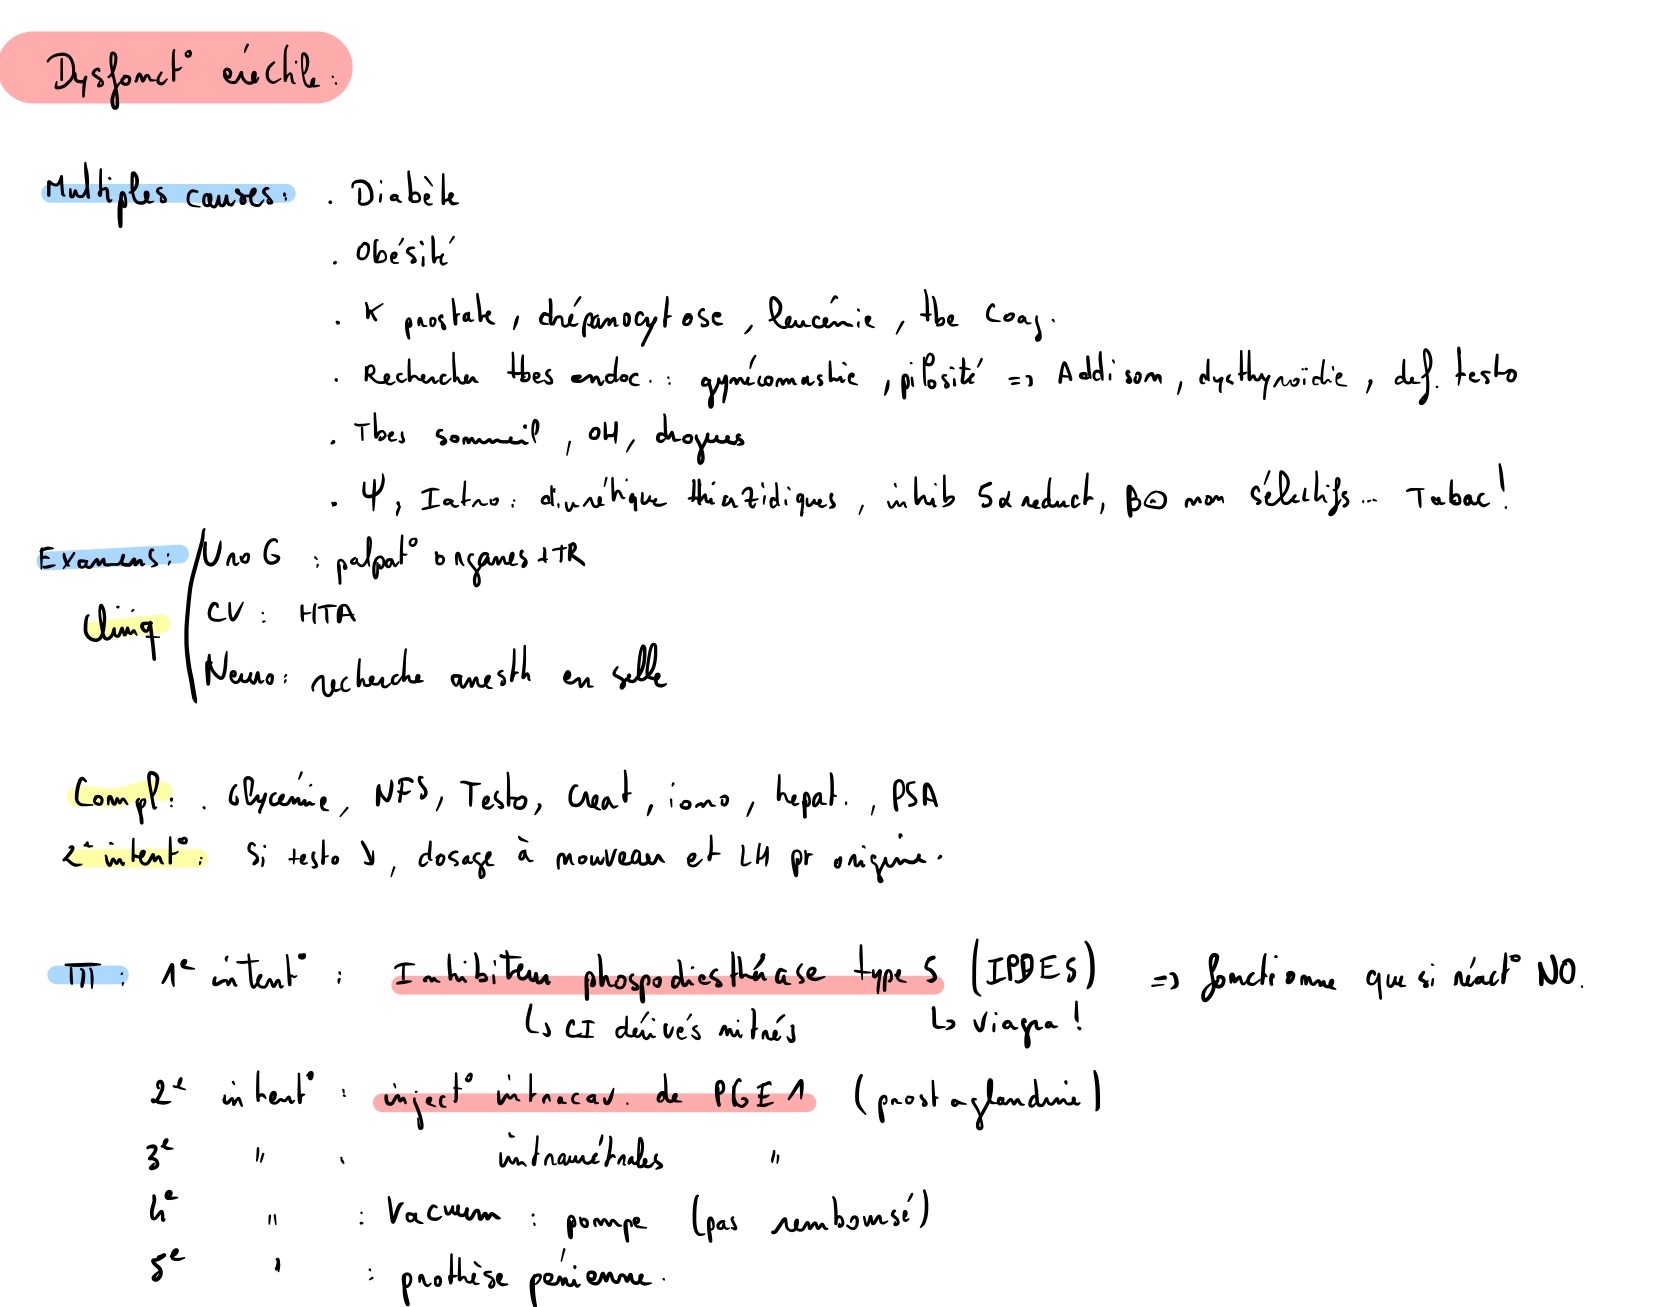 Dysfonct° érectile :
Multiples causes : . Diabète
. Obésité
. K prostate, drépanocytose, leucémie, tbe coag.
. Rechercher tbes endoc. : gynécomastie, pilosité => Addison, dysthyroïdie, def. testo
. Tbes sommeil, OH, drogues
. Ψ, Iatro : diurétique thiazidiques, inhib 5α reduct, β⊖ non sélectifs... Tabac !
Examens : Uro G : palpat° organes + TR
Cliniq CV : HTA
Neuro : recherche anesth en selle
Compl : . Glycémie, NFS, Testo, Creat, iono, hepat., PSA
2e intent° : Si testo ↘, dosage à nouveau et LH pr origine.
TTT : 1e intent° : Inhibiteur phospodiesthérase type 5 (IPDE5) => fonctionne que si réact° NO.
↳ CI dérivés nitrés ↳ Viagra !
2e intent° : inject° intracav. de PGE1 (prostaglandine)
3e " : intraurétrales "
4e " : Vacuum : pompe (pas remboursé)
5e " : prothèse pénienne.